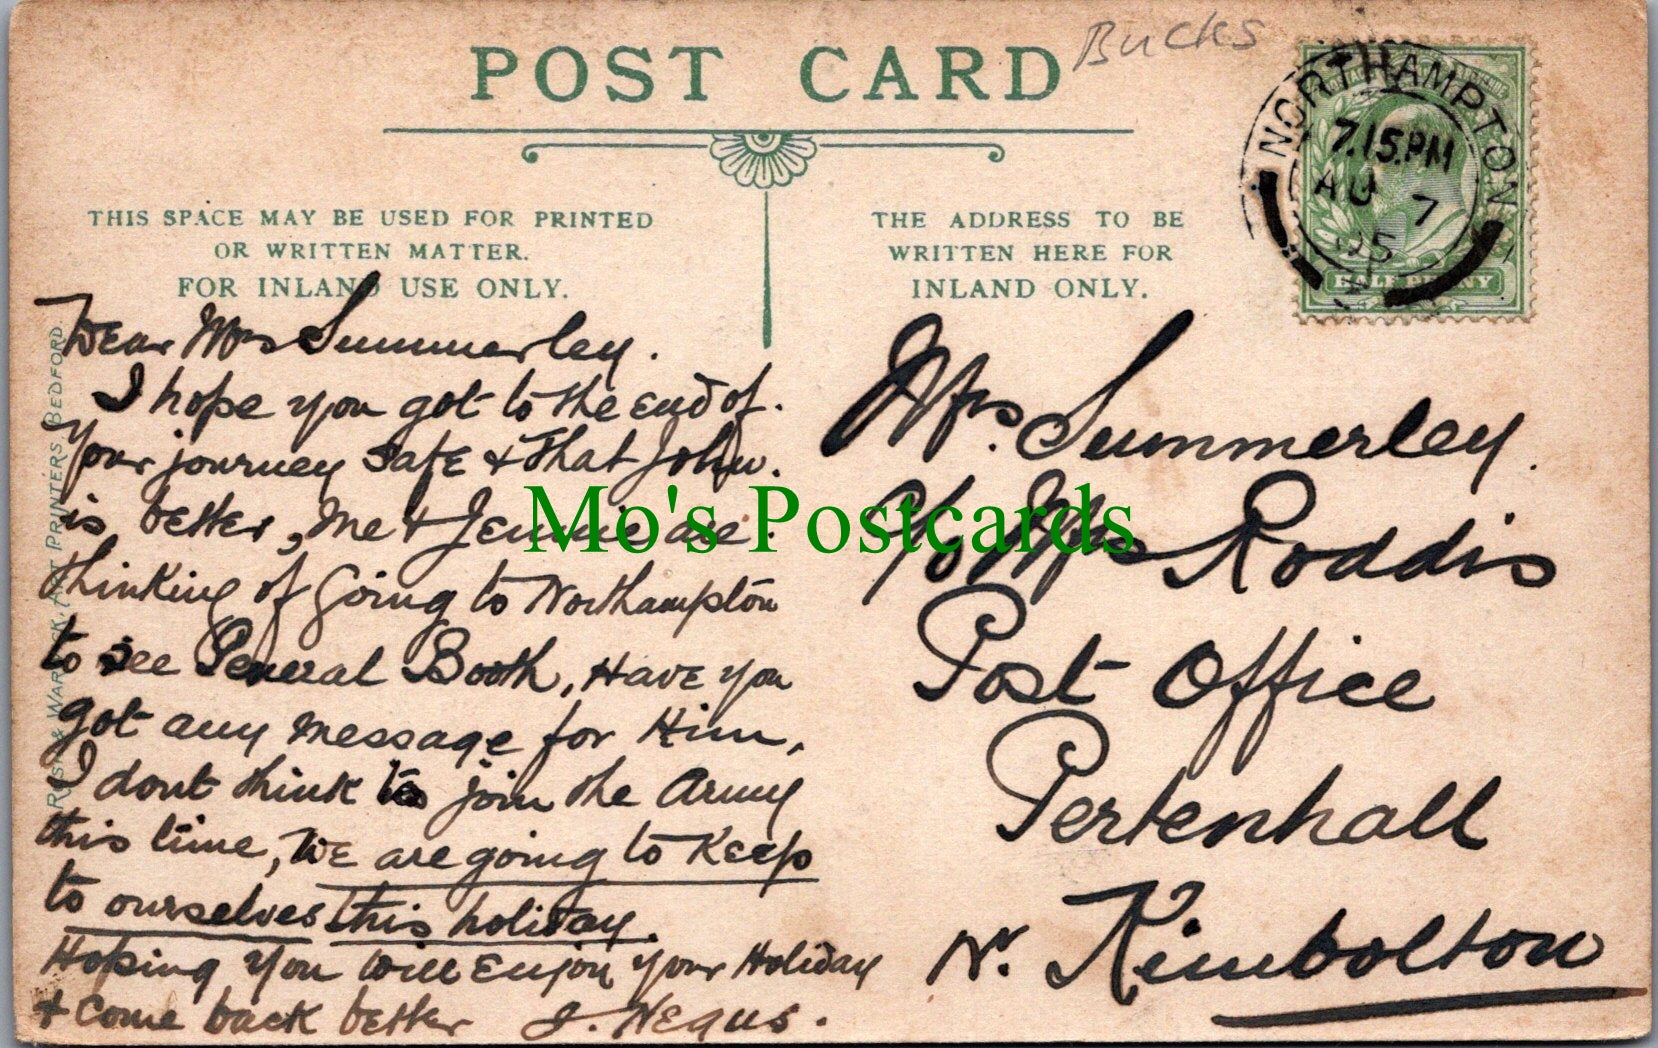 Bucks
POST CARD
NORTHAMPTON
7.15.PM
AU 7
05
HALF PENNY
THIS SPACE MAY BE USED FOR PRINTED
OR WRITTEN MATTER.
FOR INLAND USE ONLY.
THE ADDRESS TO BE
WRITTEN HERE FOR
INLAND ONLY.
Dear Mrs Summerley.
I hope you got to the end of.
Your journey safe & that John.
is better, me & Jennie are.
thinking of Going to Northampton
to see General Booth, Have you
got any message for Him,
I dont think to join the Army
this time, We are going to Keep
to ourselves this holiday.
Hoping you will Enjoy your Holiday
& come back better J. Negus.
Mrs. Summerley.
C/o Mrs Roddis
Post Office
Pertenhall
Nr. Kimbolton
RUSH & WARWICK ART PRINTERS BEDFORD
Mo's Postcards